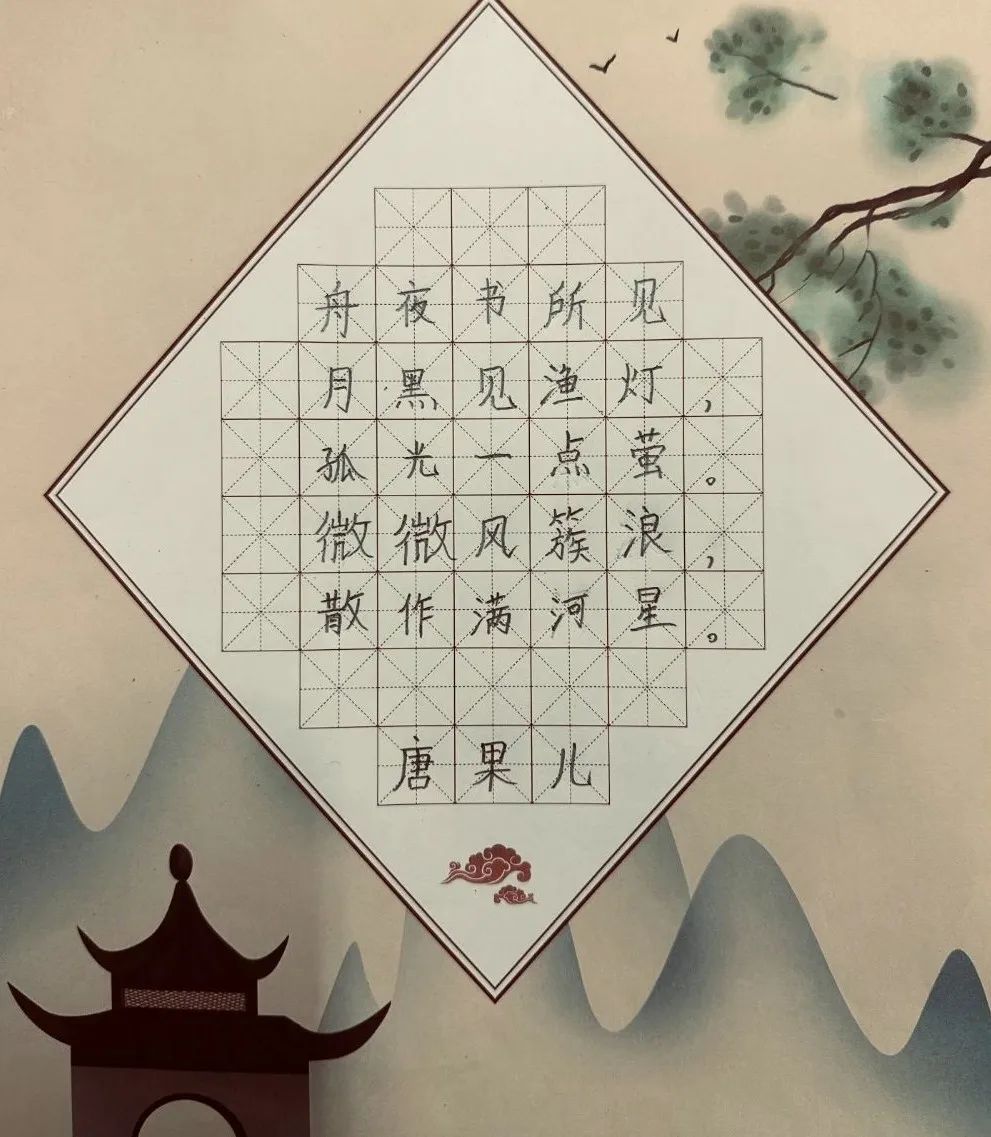 舟夜书所见
月黑见渔灯，
孤光一点萤。
微微风簇浪，
散作满河星。
唐果儿